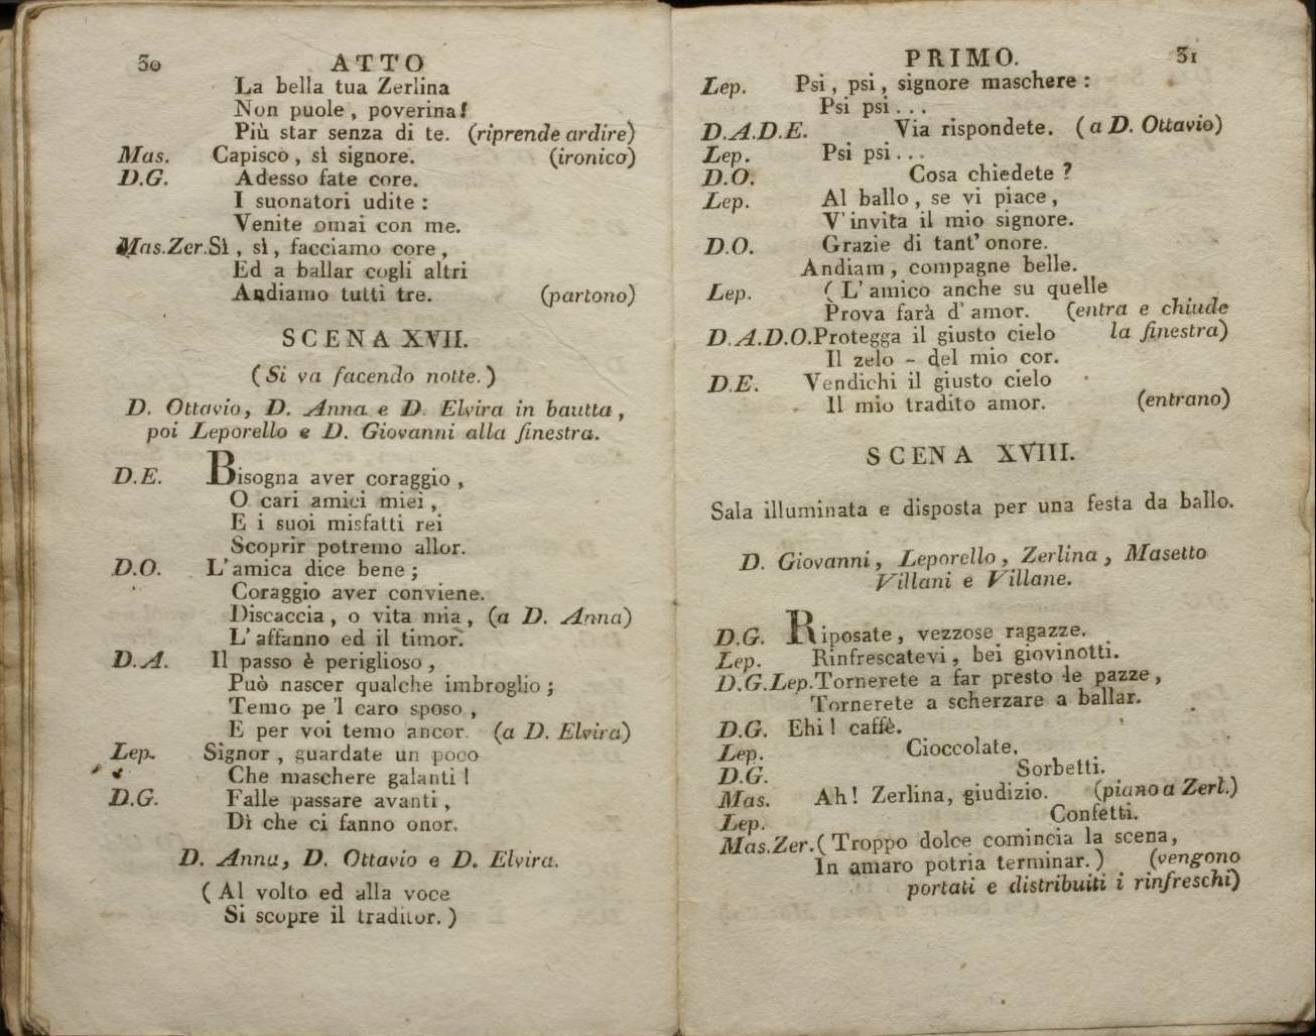 30 ATTO
La bella tua Zerlina
Non puole, poverina!
Più star senza di te. (riprende ardire)
Mas. Capisco, sì signore. (ironico)
D.G. Adesso fate core.
I suonatori udite:
Venite omai con me.
Mas.Zer. Sì, sì, facciamo core,
Ed a ballar cogli altri
Andiamo tutti tre. (partono)
SCENA XVII.
(Si va facendo notte.)
D. Ottavio, D. Anna e D. Elvira in bautta,
poi Leporello e D. Giovanni alla finestra.
D.E. Bisogna aver coraggio,
O cari amici miei,
E i suoi misfatti rei
Scoprir potremo allor.
D.O. L'amica dice bene;
Coraggio aver conviene.
Discaccia, o vita mia, (a D. Anna)
L'affanno ed il timor.
D.A. Il passo è periglioso,
Può nascer qualche imbroglio;
Temo pe'l caro sposo,
E per voi temo ancor. (a D. Elvira)
Lep. Signor, guardate un poco
Che maschere galanti!
D.G. Falle passare avanti,
Dì che ci fanno onor.
D. Anna, D. Ottavio e D. Elvira.
(Al volto ed alla voce
Si scopre il traditor.)
PRIMO. 31
Lep. Psi, psi, signore maschere:
Psi psi...
D.A.D.E. Via rispondete. (a D. Ottavio)
Lep. Psi psi...
D.O. Cosa chiedete?
Lep. Al ballo, se vi piace,
V'invita il mio signore.
D.O. Grazie di tant'onore.
Andiam, compagne belle.
Lep. (L'amico anche su quelle
Prova farà d'amor. (entra e chiude
D.A.D.O. Protegga il giusto cielo la finestra)
Il zelo - del mio cor.
D.E. Vendichi il giusto cielo
Il mio tradito amor. (entrano)
SCENA XVIII.
Sala illuminata e disposta per una festa da ballo.
D. Giovanni, Leporello, Zerlina, Masetto
Villani e Villane.
D.G. Riposate, vezzose ragazze.
Lep. Rinfrescatevi, bei giovinotti.
D.G.Lep. Tornerete a far presto le pazze,
Tornerete a scherzare a ballar.
D.G. Ehi! caffè.
Lep. Cioccolate.
D.G. Sorbetti.
Mas. Ah! Zerlina, giudizio. (piano a Zerl.)
Lep. Confetti.
Mas.Zer. (Troppo dolce comincia la scena,
In amaro potria terminar.) (vengono
portati e distribuiti i rinfreschi)